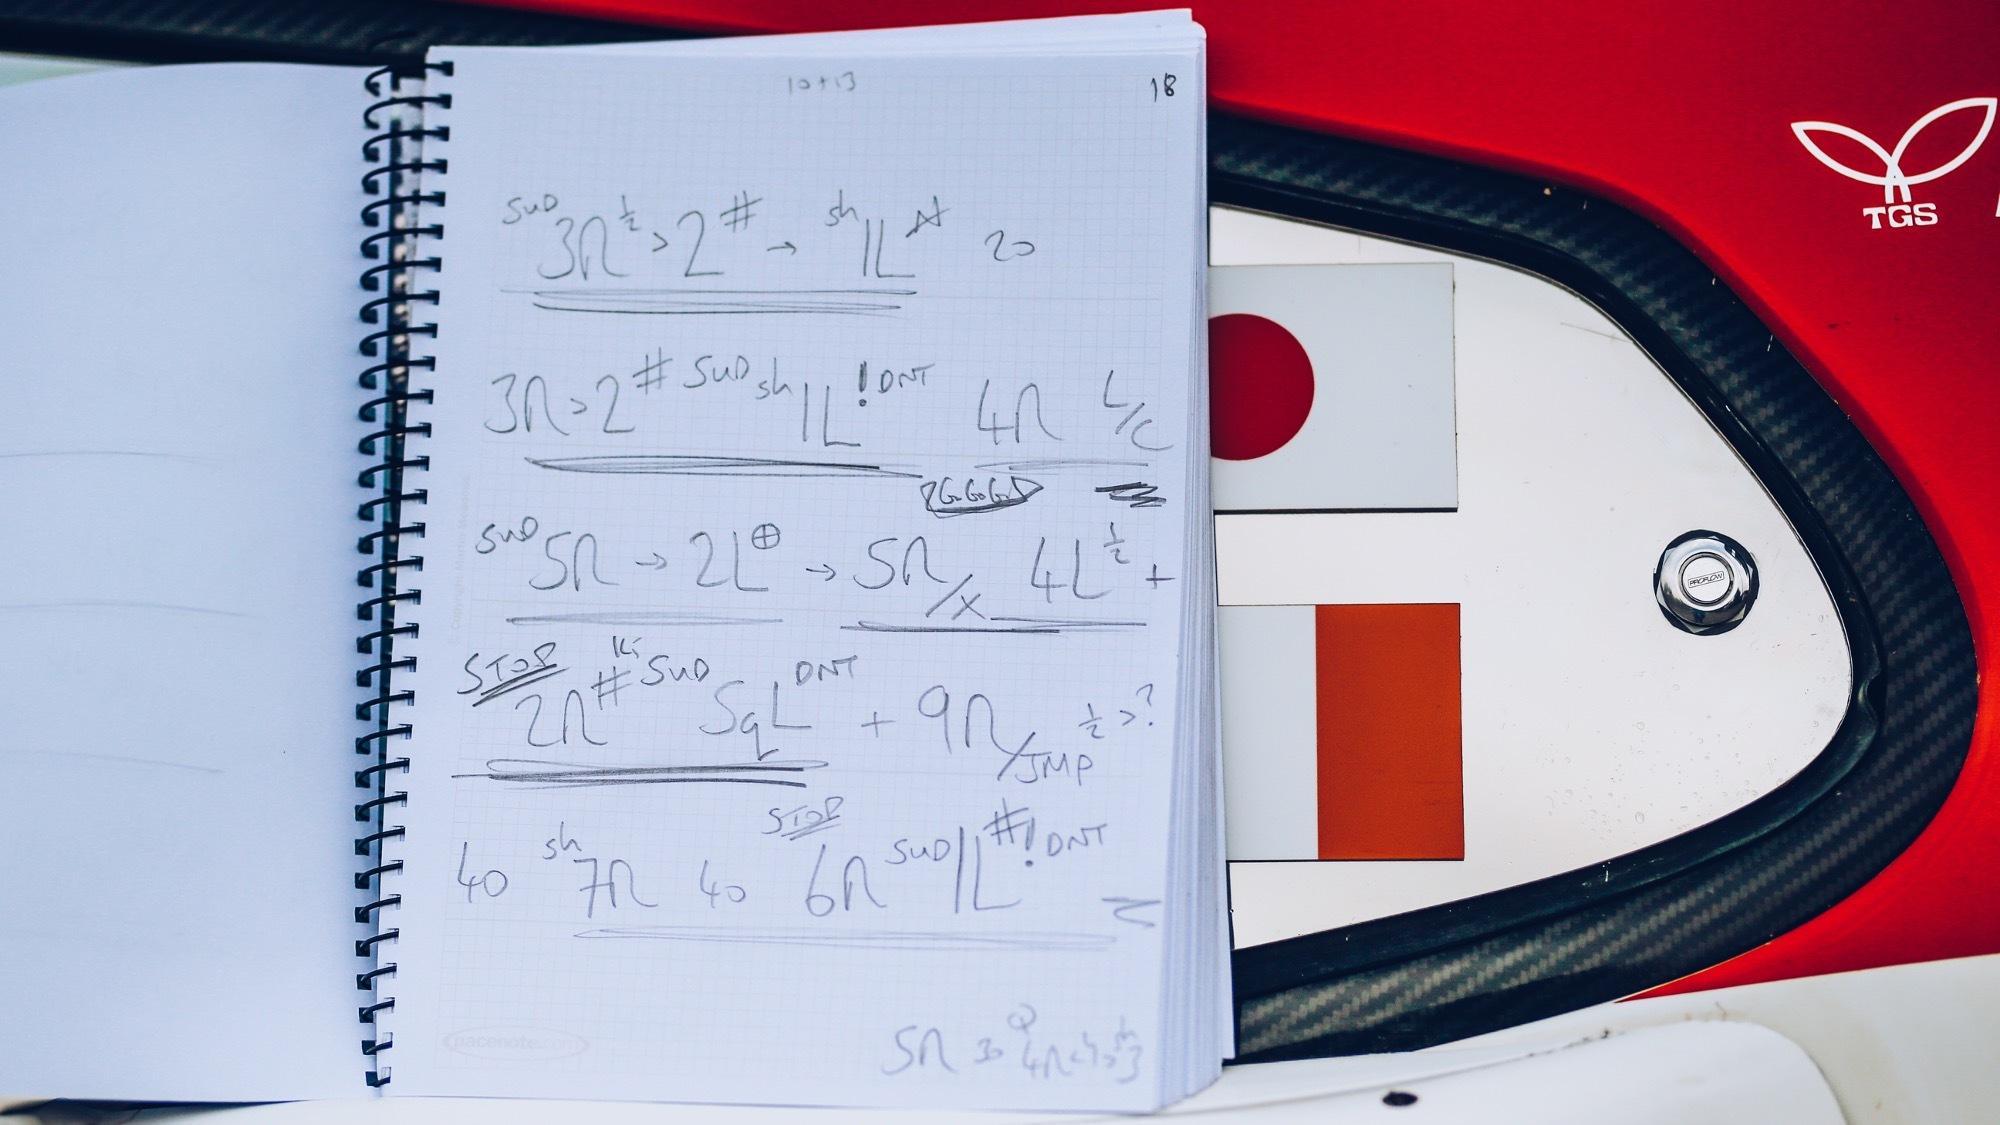 10+13
18
SUD 3R ½ > 2 # → sh 1L 20
3R > 2 # SUD sh 1L ! DNT 4R L/C
GoGoGo
SUD 5R → 2L ⊕ → 5R/X 4L ½ +
STOP 2R # Ki SUD SqL DNT + 9R/JMP ½ >?
40 sh 7R 40 STOP 6R SUD 1L #! DNT
5R
pacenote.com
TGS
PROFLOW